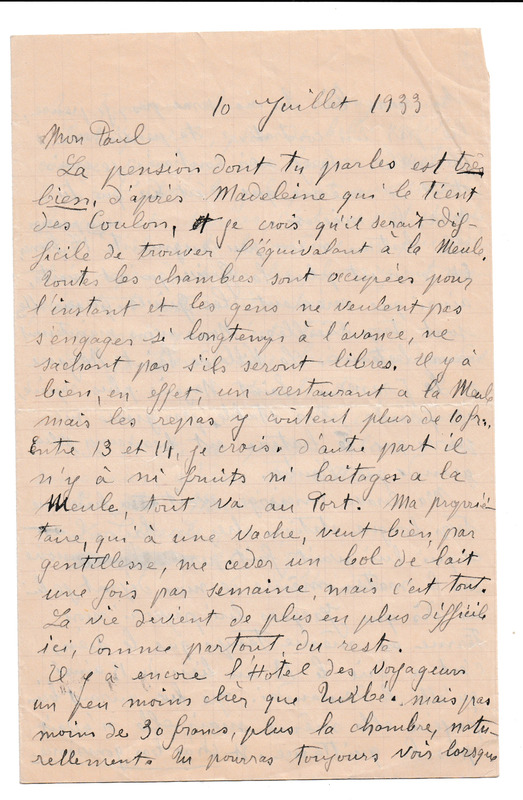 10 Juillet 1933
Mon Paul
La pension dont tu parles est très
bien, d'après Madeleine qui le tient
des Coulon, et je crois qu'il serait dif-
ficile de trouver l'équivalant à la Meule.
Toutes les chambres sont occupées pour
l'instant et les gens ne veulent pas
s'engager si longtemps à l'avance, ne
sachant pas s'ils seront libres. Il y à
bien, en effet, un restaurant a la Meule
mais les repas y coutent plus de 10 frs.
Entre 13 et 14, je crois. d'autre part il
n'y à ni fruits ni laitages a la
Meule, tout va au Port. Ma proprié-
taire, qui à une vache, veut bien, par
gentillesse, me ceder un bol de lait
une fois par semaine, mais c'est tout.
La vie devient de plus en plus difficile
ici, comme partout, du reste.
Il y à encore l'Hotel des Voyageurs
un peu moins chèr que mais pas
moins de 30 francs, plus la chambre, natu-
rellement. Tu pourras toujours voir lorsque